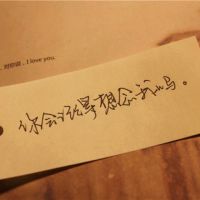 对你说，I love you.
你会经常想念我吗。